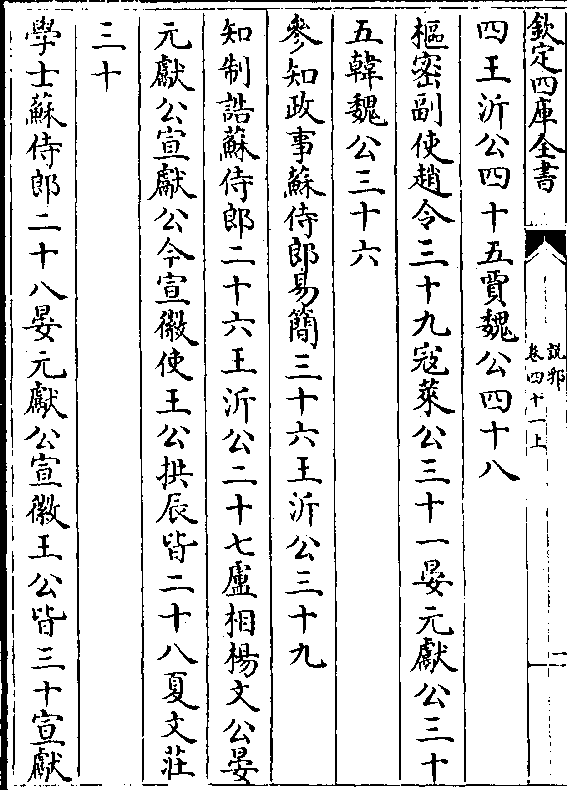 欽定四庫全書
說郛
卷四十一上
四王沂公四十五賈魏公四十八
樞密副使趙令三十九寇萊公三十一晏元獻公三十
五韓魏公三十六
參知政事蘇侍郎易簡三十六王沂公三十九
知制誥蘇侍郎二十六王沂公二十七盧相楊文公晏
元獻公宣獻公今宣徽使王公拱辰皆二十八夏文莊
三十
學士蘇侍郎二十八晏元獻公宣徽王公皆三十宣獻